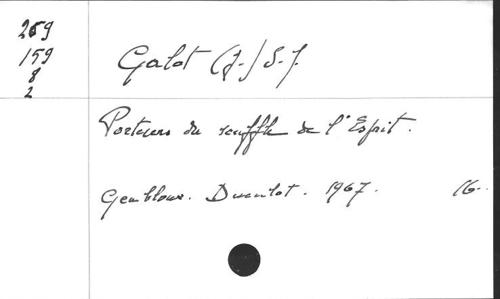 259
159
8
2
Galot (J.) S.J.
Porteurs du souffle de l'Esprit.
Gembloux. Duculot. 1967. 16.